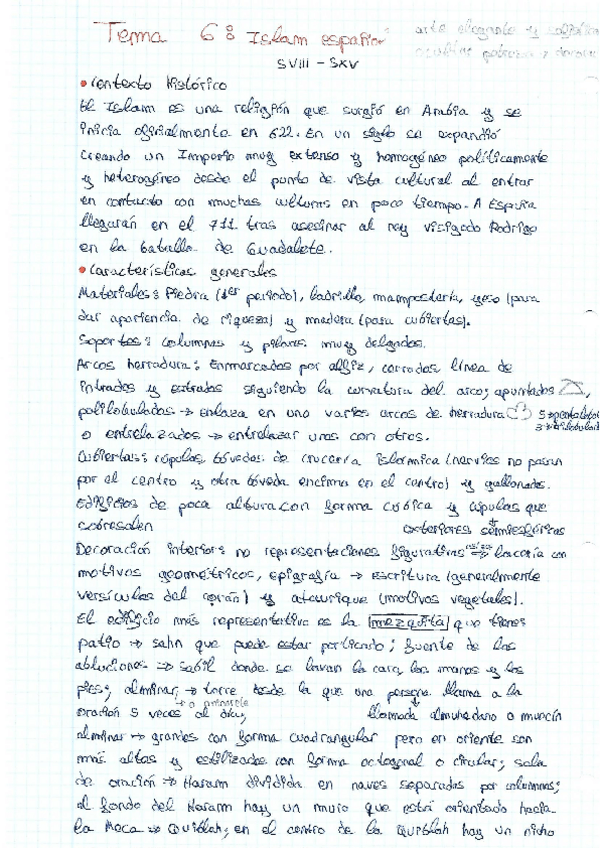 Tema 6: Islam español
arte elegante y
ocultar pobreza →
SVIII - SXV
• Contexto Histórico
El Islam es una religión que surgió en Arabia y se
inicia oficialmente en 622. En un siglo se expandió
creando un Imperio muy extenso y homogéneo políticamente
y heterogéneo desde el punto de vista cultural al entrar
en contacto con muchas culturas en poco tiempo. A España
llegarán en el 711 tras asesinar al rey visigodo Rodrigo
en la batalla de Guadalete.
• Características generales
Materiales: Piedra (1er periodo), ladrillo, mampostería, yeso (para
dar apariencia de riqueza) y madera (para cubiertas).
Soportes: columnas y pilares muy delgados.
Arcos herradura: Enmarcados por alfiz, cerradas línea de
intradós y extradós siguiendo la curvatura del arco; apuntados,
polilobulados → enlaza en uno varios arcos de herradura 5 → pentalobul
3 → trilobulado
o entrelazados → entrelazar unos con otros.
Cubiertas: cúpulas, bóvedas de crucería islámica (nervios no pasan
por el centro y otra bóveda encima en el centro) y gallonadas.
Edificios de poca altura con forma cúbica y cúpulas que
sobresalen exteriores semiesféricas
Decoración interior: no representaciones figurativas → lacería con
motivos geométricos, epigrafía → escritura (generalmente
versículos del corán) y ataurique (motivos vegetales).
El edificio más representativo es la mezquita que tienes
patio → sahn que puede estar porticado; fuente de las
abluciones → sabil donde se lavan la cara, las manos y los
pies; alminar → torre desde la que una persona llama a la
→ o minarete
oración 5 veces al día; llamada almuedano o muecín
alminar → grandes con forma cuadrangular pero en oriente son
más altas y estilizadas con forma octogonal o circular; sala
de oración → Haram dividida en naves separadas por columnas;
al fondo del Haram hay un muro que está orientado hacia
la Meca → Quiblah; en el centro de la Quiblah hay un nicho